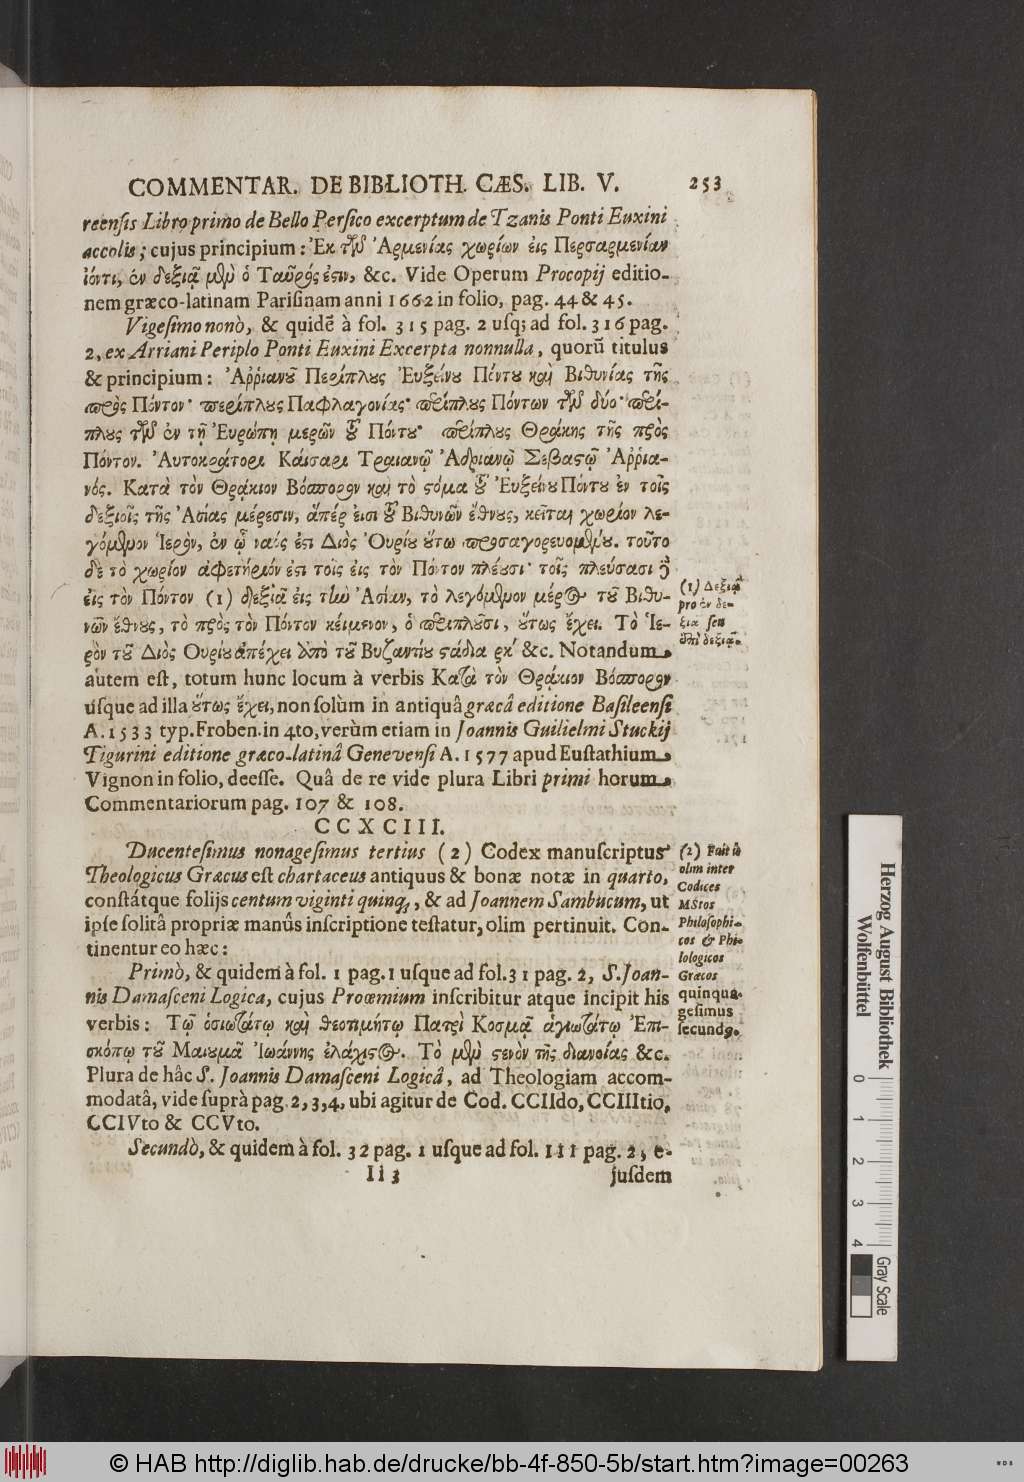 COMMENTAR. DE BIBLIOTH. CÆS. LIB. V. 253
reensis Libro primo de Bello Persico excerptum de Tzanis Ponti Euxini
accolis; cujus principium: Ἐκ τῶν Ἀρμενίας χωρίων εἰς Περσαρμενίαν
ἰόντι, ἐν δεξιᾷ μὲν ὁ Ταῦρός ἐστιν, &c. Vide Operum Procopij editio-
nem græco-latinam Parisinam anni 1662 in folio, pag. 44 & 45.
Vigesimo nonò, & quidē à fol. 315 pag. 2 usq; ad fol. 316 pag.
2, ex Arriani Periplo Ponti Euxini Excerpta nonnulla, quorū titulus
& principium: Ἀῤῥιανοῦ Περίπλους Ἐυξείνου Πόντου καὶ Βιθυνίας τῆς
πρὸς Πόντον· περίπλους Παφλαγονίας· περίπλους Πόντων τῶν δύο· περί-
πλους τῶν ἐν τῇ Ἐυρώπῃ μερῶν τοῦ Πόντου· περίπλους Θράκης τῆς πρὸς
Πόντον. Ἀυτοκράτορι Καίσαρι Τραιανῷ Ἀδριανῷ Σεβαστῷ Ἀῤῥια-
νός. Κατὰ τὸν Θράκιον Βόσπορον καὶ τὸ στόμα τοῦ Ἐυξείνου Πόντου ἐν τοῖς
δεξιοῖς τῆς Ἀσίας μέρεσιν, ἅπέρ εἰσι τοῦ Βιθυνῶν ἔθνους, κεῖται χωρίον λε-
γόμενον Ἱερὸν, ἐν ᾧ ναός ἐστι Διὸς Ὀυρίου οὕτω προσαγορευομένου. τοῦτο
δὲ τὸ χωρίον ἀφετήριόν ἐστι τοῖς εἰς τὸν Πόντον πλέουσι· τοῖς πλεύσασι δὲ
εἰς τὸν Πόντον (1) δεξιᾷ εἰς τὴν Ἀσίαν, τὸ λεγόμενον μέρος τοῦ Βιθυ-
νῶν ἔθνους, τὸ πρὸς τὸν Πόντον κείμενον, ὁ περίπλους, οὕτως ἔχει. Τὸ Ἱε-
ρὸν τοῦ Διὸς Ουρίου ἀπέχει ἀπὸ τοῦ Βυζαντίου στάδια ρκʹ &c. Notandum
autem est, totum hunc locum à verbis Κατὰ τὸν Θράκιον Βόσπορον
usque ad illa οὕτως ἔχει, non solùm in antiquâ græcâ editione Basileensi
A. 1533 typ. Froben. in 4to, verùm etiam in Joannis Guilielmi Stuckij
Tigurini editione græco-latinâ Genevensi A. 1577 apud Eustathium
Vignon in folio, deesse. Quâ de re vide plura Libri primi horum
Commentariorum pag. 107 & 108.
(1) Δεξιᾷ
pro ἐν δε-
ξιᾷ seu
ἐπὶ δεξιᾷ.
CCXCIII.
Ducentesimus nonagesimus tertius (2) Codex manuscriptus
Theologicus Græcus est chartaceus antiquus & bonæ notæ in quarto,
constátque folijs centum viginti quinq;, & ad Joannem Sambucum, ut
ipse solitâ propriæ manûs inscriptione testatur, olim pertinuit. Con-
tinentur eo hæc:
Primò, & quidem à fol. 1 pag. 1 usque ad fol. 31 pag. 2, S. Joan-
nis Damasceni Logica, cujus Proœmium inscribitur atque incipit his
verbis: Τῷ ὁσιωτάτῳ καὶ θεοτιμήτῳ Πατρὶ Κοσμᾷ ἁγιωτάτῳ Ἐπι-
σκόπῳ τοῦ Μαιουμᾶ Ἰωάννης ἐλάχιστος. Τὸ μὲν στενὸν τῆς διανοίας &c.
Plura de hâc S. Joannis Damasceni Logicâ, ad Theologiam accom-
modatâ, vide suprà pag. 2, 3, 4, ubi agitur de Cod. CCIIdo, CCIIItio,
CCIVto & CCVto.
Secundò, & quidem à fol. 32 pag. 1 usque ad fol. 111 pag. 2, e-
(2) Fuit is
olim inter
Codices
MStos
Philosophi-
cos & Phi-
lologicos
Græcos
quinqua-
gesimus
secundo.
Iii 3 jusdem
Herzog August Bibliothek
Wolfenbüttel
0 1 2 3 4
Gray Scale
© HAB http://diglib.hab.de/drucke/bb-4f-850-5b/start.htm?image=00263